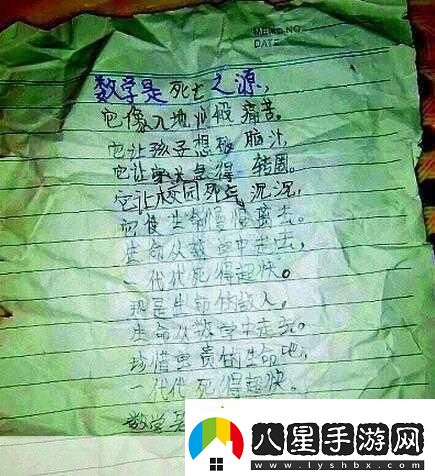 MEMO NO.
DATE
数学是死亡之源,
它像入地狱般痛苦。
它让孩子想破脑汁,
它让家长急得转圈。
它让校园死气沉沉,
它使生命慢慢离去。
生命从数学中走去,
一代代死得超快。
那是生命的敌人,
生命从数学中走去。
珍惜宝贵的生命吧,
一代代死得超快。
数学是
八星手游网
www.lyshbx.com